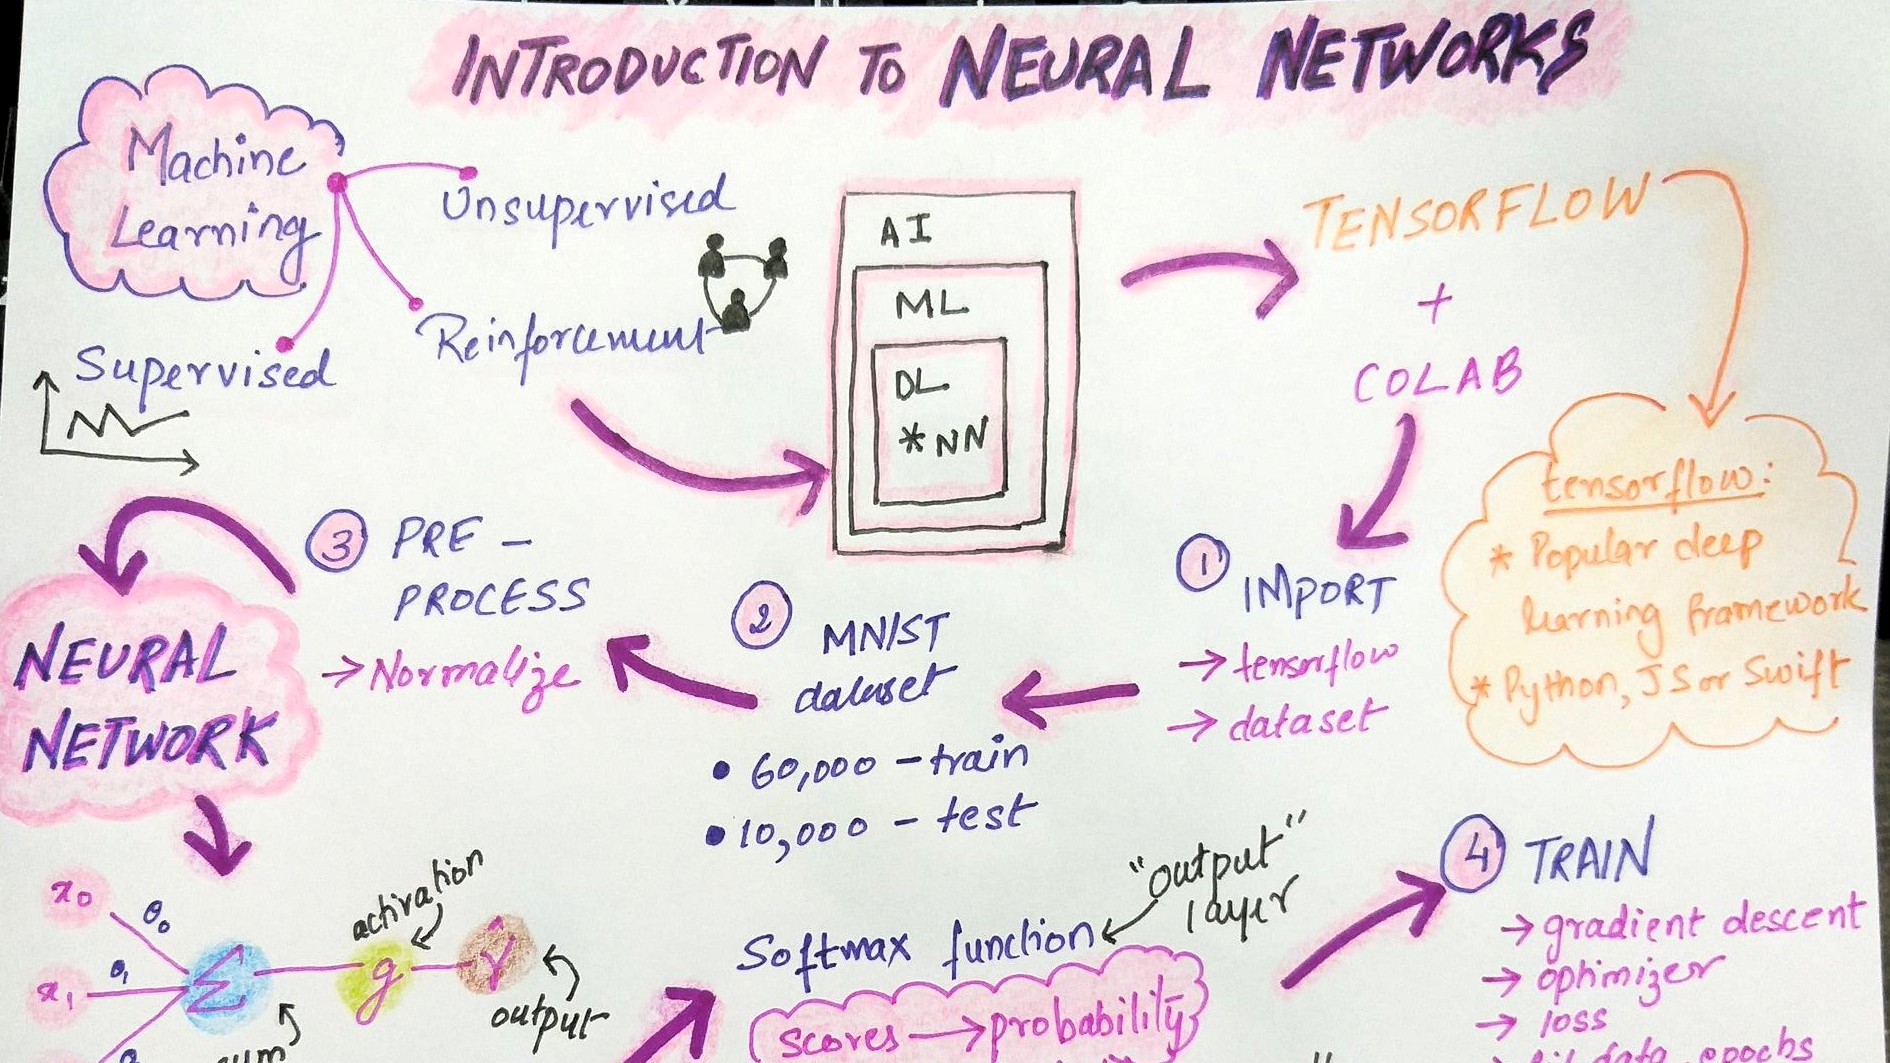 INTRODUCTION TO NEURAL NETWORKS
Machine
Learning
Unsupervised
Reinforcement
Supervised
AI
ML
DL
*NN
TENSORFLOW
+
COLAB
tensorflow:
* Popular deep
learning framework
* Python, JS or Swift
1 IMPORT
→ tensorflow
→ dataset
2 MNIST
dataset
• 60,000 - train
• 10,000 - test
3 PRE -
PROCESS
→ Normalize
NEURAL
NETWORK
x0
θ0
x1
θ1
Σ
sum
activation
g
ŷ
output
"output"
layer
Softmax function
scores → probability
4 TRAIN
→ gradient descent
→ optimizer
→ loss
data, epochs